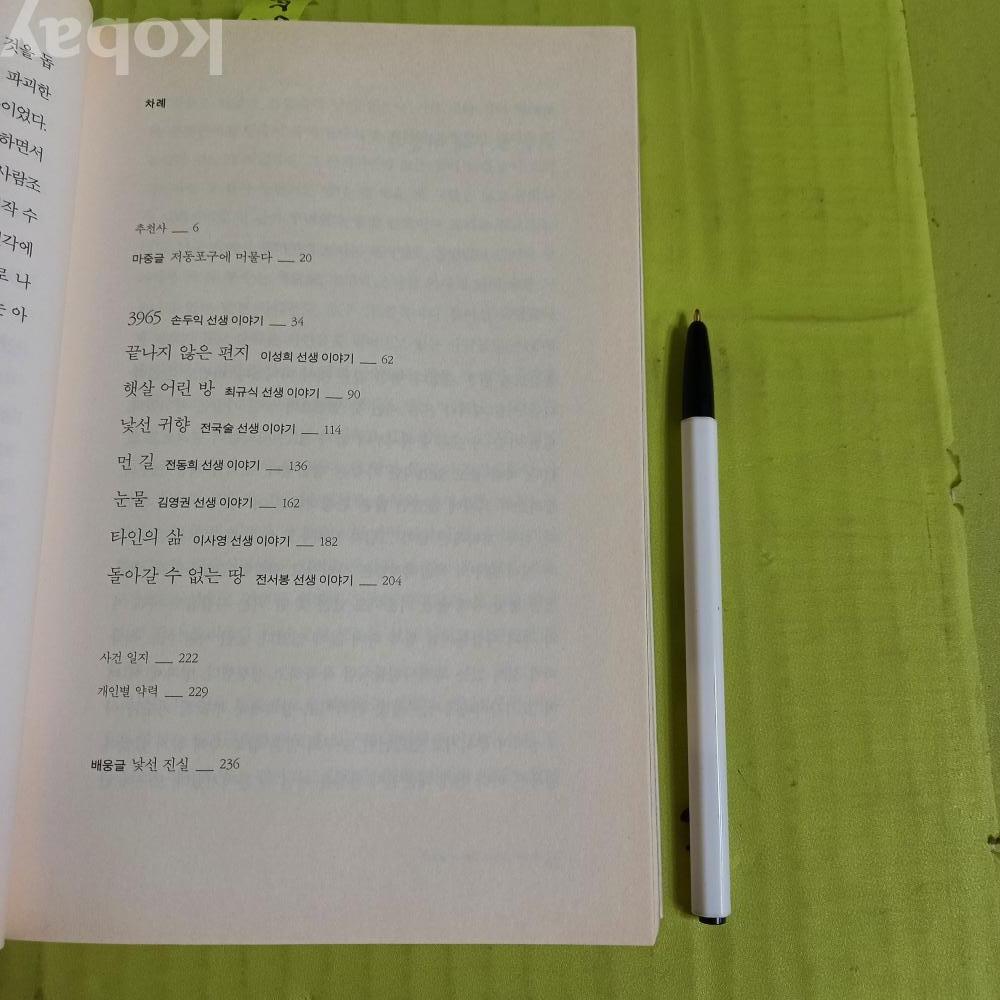 kobay
것을 돕
파괴한
이었다.
하면서
사람조
작 수
각에
로 나
는 아
차례
추천사 __ 6
마중글 저동포구에 머물다 __ 20
3965 손두익 선생 이야기 __ 34
끝나지 않은 편지 이성희 선생 이야기 __ 62
햇살 어린 방 최규식 선생 이야기 __ 90
낯선 귀향 전국술 선생 이야기 __ 114
먼 길 전동희 선생 이야기 __ 136
눈물 김영권 선생 이야기 __ 162
타인의 삶 이사영 선생 이야기 __ 182
돌아갈 수 없는 땅 전서봉 선생 이야기 __ 204
사건 일지 __ 222
개인별 약력 __ 229
배웅글 낯선 진실 __ 236